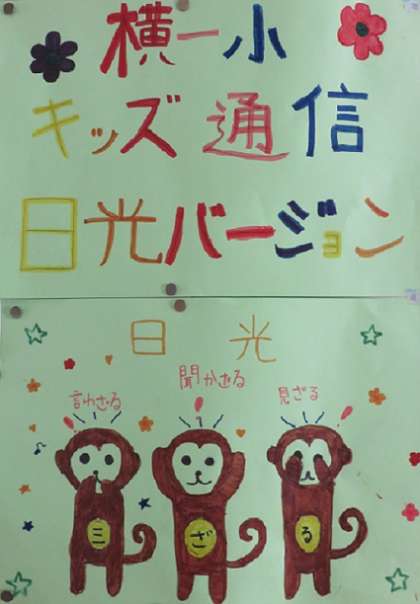 横一小
キッズ通信
日光バージョン
日光
言わざる
聞かざる
見ざる
三ざる